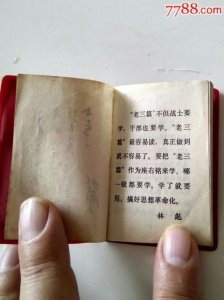 7788.com
"老三篇"不但战士要
学,干部也要学。"老三
篇"最容易读,真正做到
就不容易了。要把"老三
篇"作为座右铭来学。哪
一级都要学。学了就要
用,搞好思想革命化。
林 彪